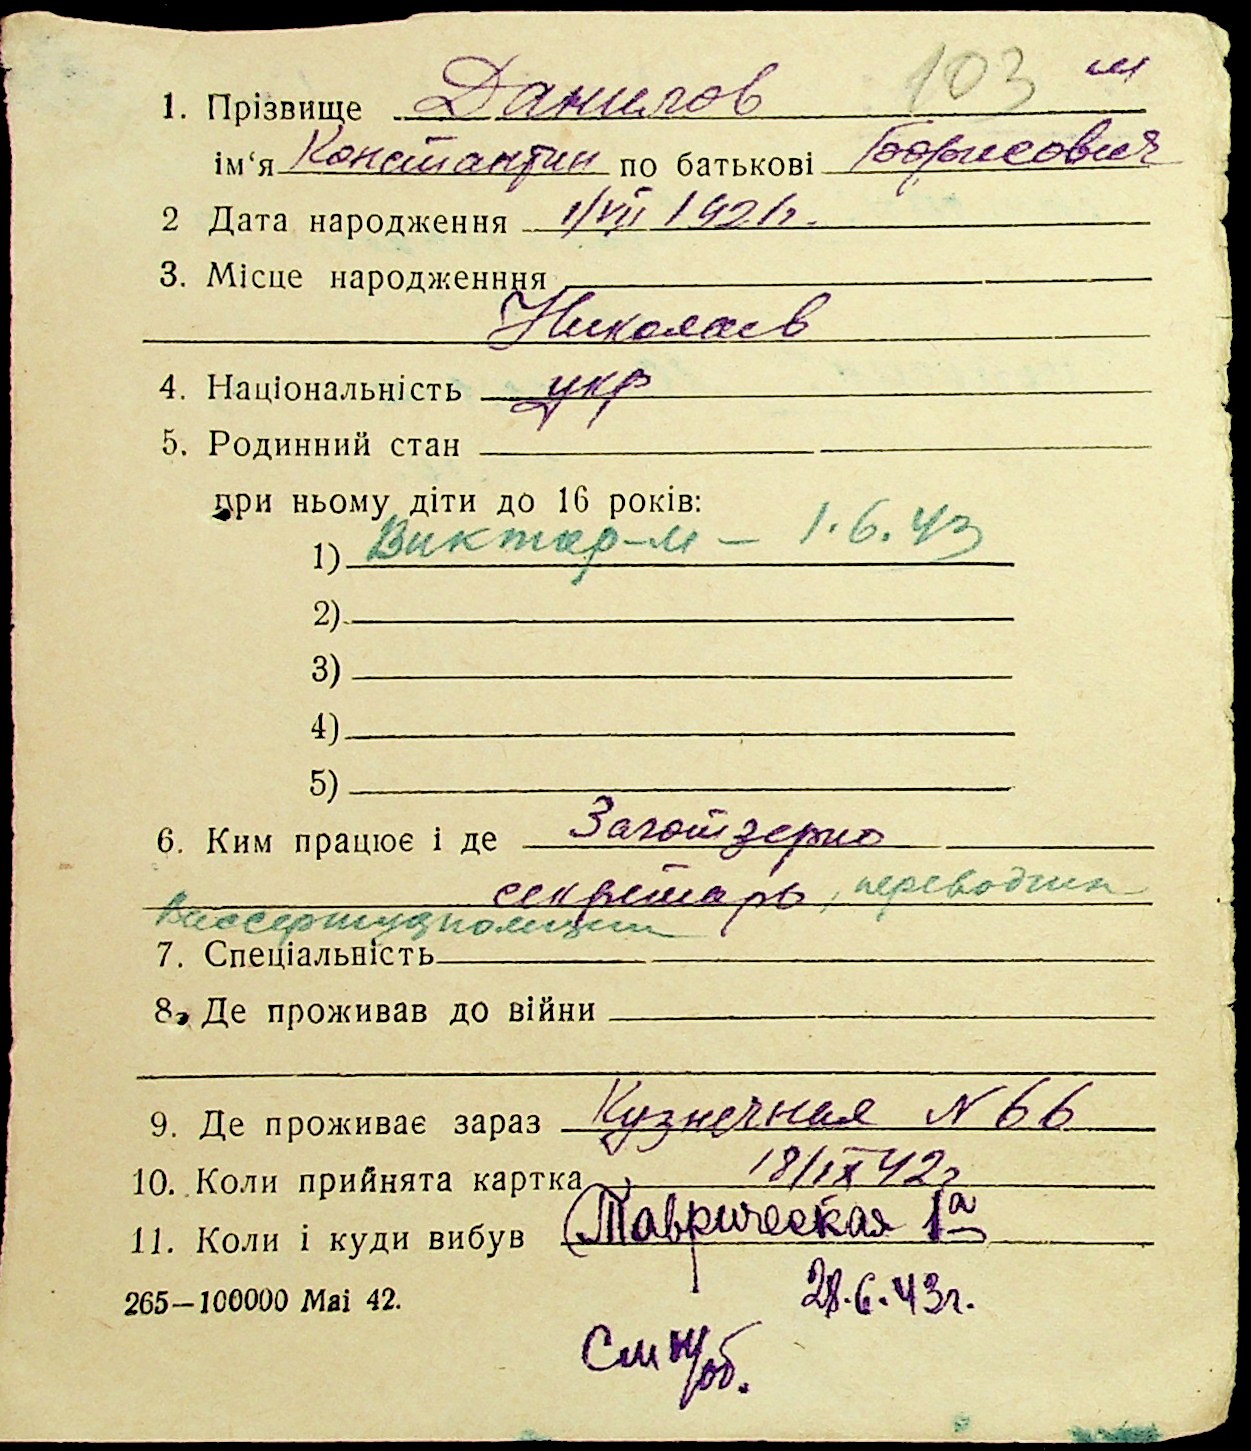 103 м
1. Прізвище Данилов
ім'я Константин по батькові Борисович
2 Дата народження 1/VII 1921г.
3. Місце народженння
Николаев
4. Національність укр
5. Родинний стан
при ньому діти до 16 років:
1) Виктор-м — 1.6.43
2)
3)
4)
5)
6. Ким працює і де Заготзерно
секретарь, переводчик
Вассершуцполиции
7. Спеціальність
8. Де проживав до війни
9. Де проживає зараз Кузнечная N 66
10. Коли прийнята картка 18/IX 42г
11. Коли і куди вибув Таврическая 1а
265—100000 Mai 42.
28.6.43г.
См н/об.